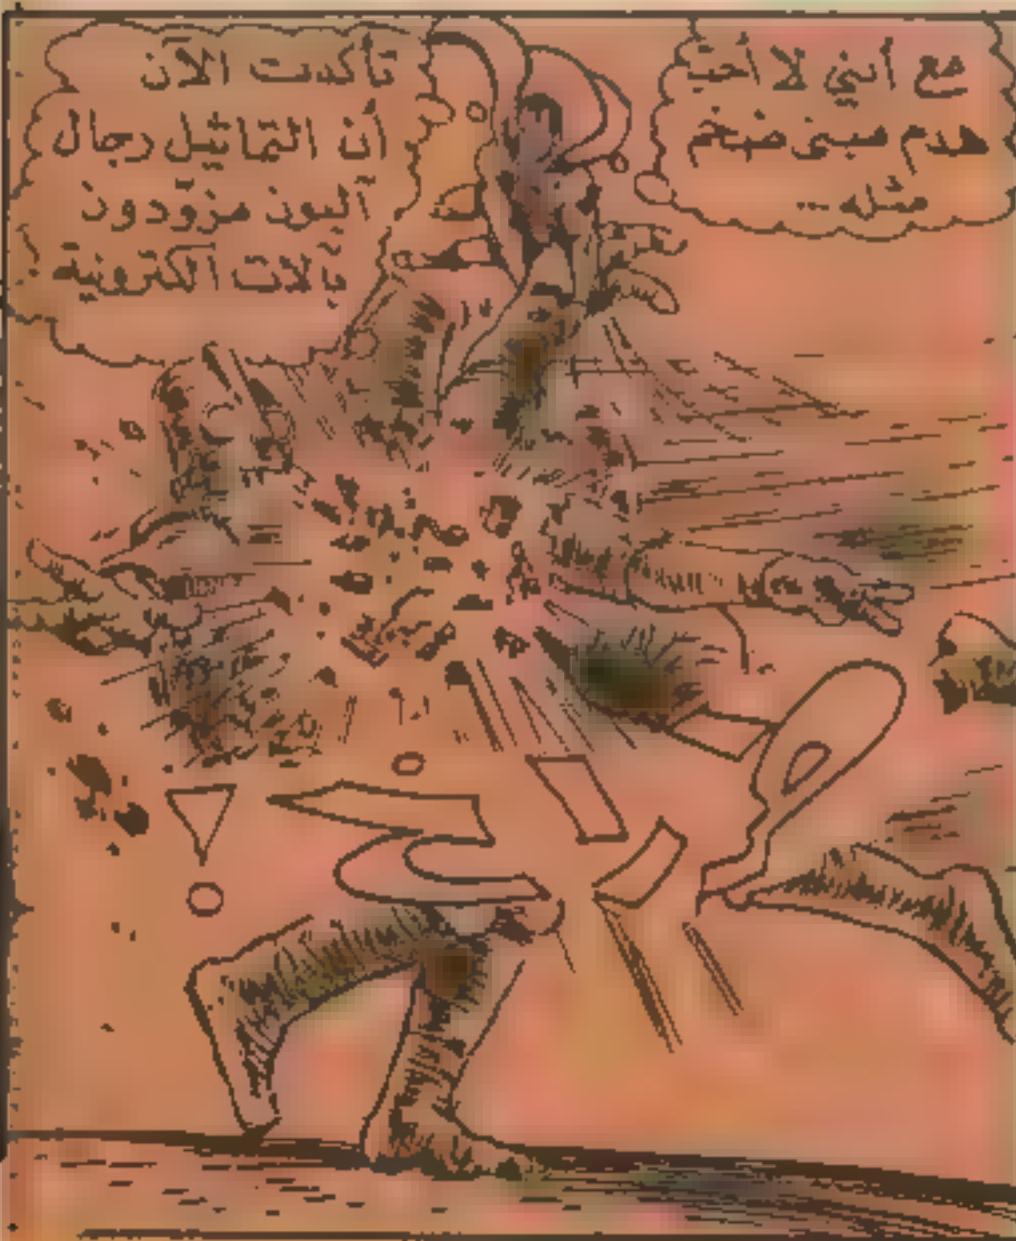 مع أنني لا أحب
هدم مبنى ضخم
مثله...
تأكدت الآن
أن التماثيل رجال
آليون مزودون
بآلات الكترونية